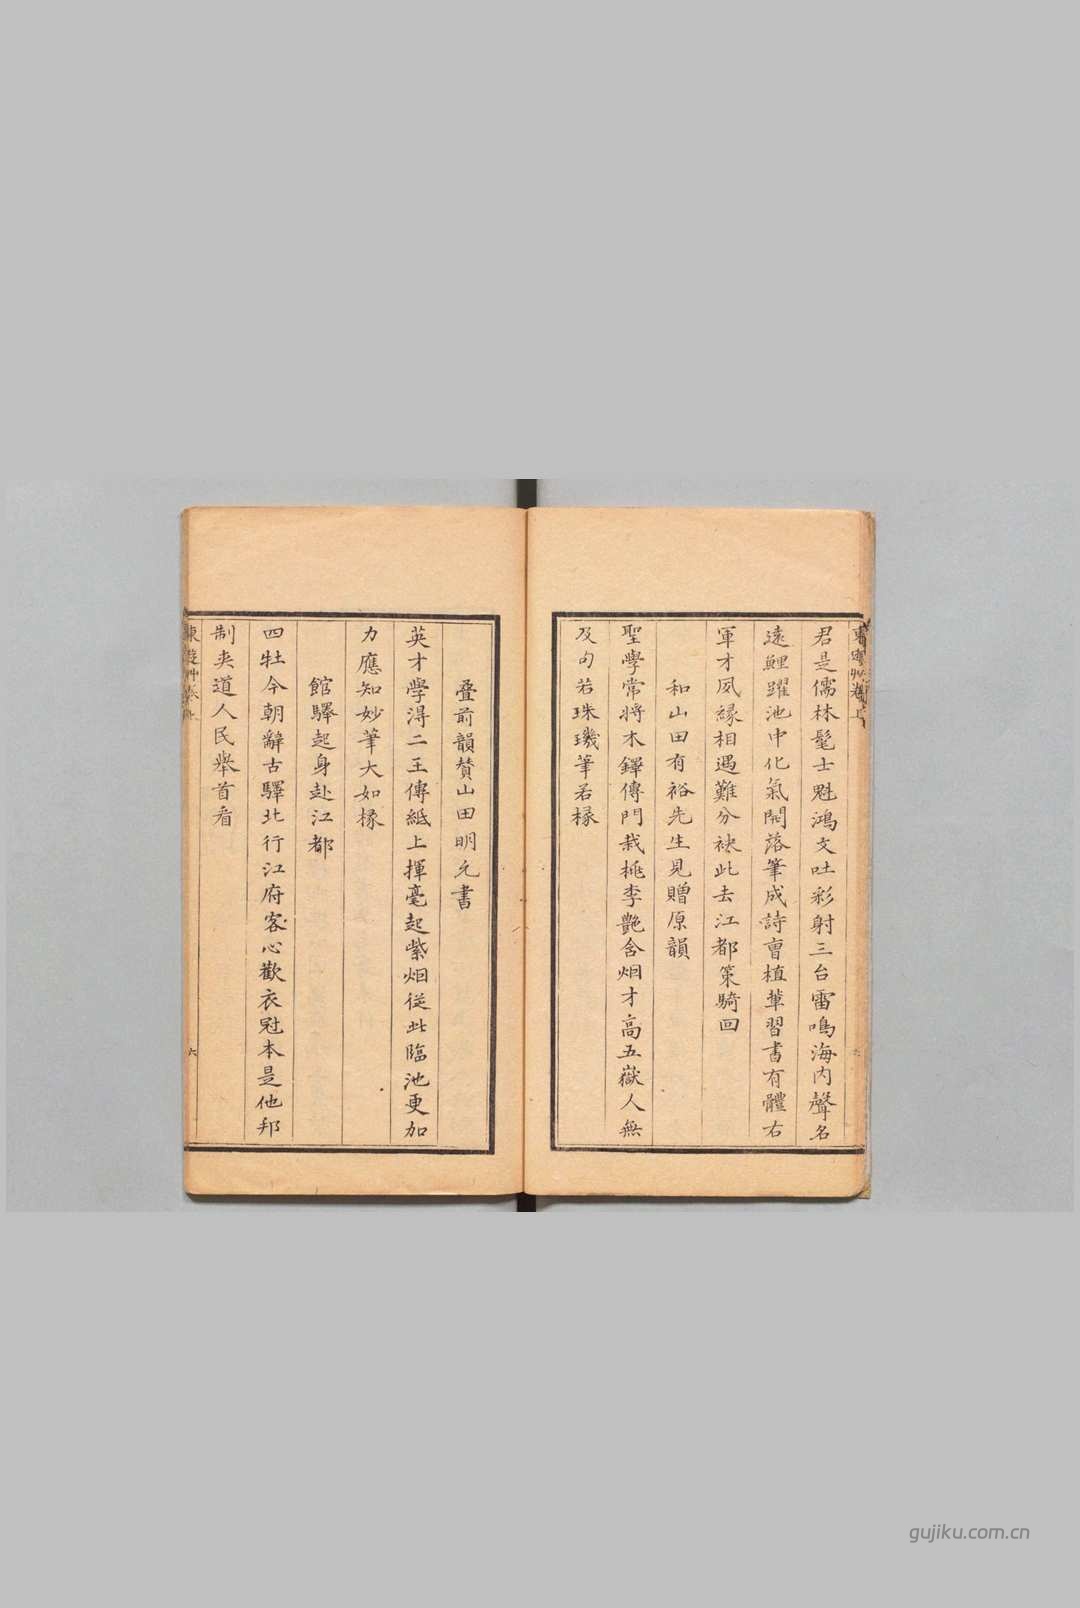 君是儒林髦士魁鴻文吐彩射三台雷鳴海內聲名
遠鯉躍池中化氣開落筆成詩曺植輩習書有體右
軍才夙縁相遇難分袂此去江都策騎回
和山田有裕先生見贈原韻
聖學常將木鐸傳門栽桃李艷含烟才高五嶽人無
及句若珠璣筆若椽
東遊艸卷上
六
疊前韻賛山田明允書
英才學淂二王傳紙上揮毫起紫烟從此臨池更加
力應知妙筆大如椽
館驛起身赴江都
四牡今朝辭古驛北行江府客心歡衣冠本是他邦
制夾道人民舉首看
東遊艸卷上
六
gujiku.com.cn